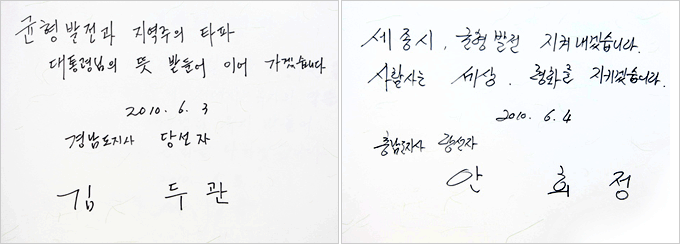 균형발전과 지역주의 타파
대통령님의 뜻 받들어 이어 가겠습니다
2010. 6. 3
경남도지사 당선자
김두관
세종시, 균형발전 지켜내겠습니다.
사람사는 세상, 평화를 지키겠습니다.
2010. 6. 4
충남도지사 당선자
안희정